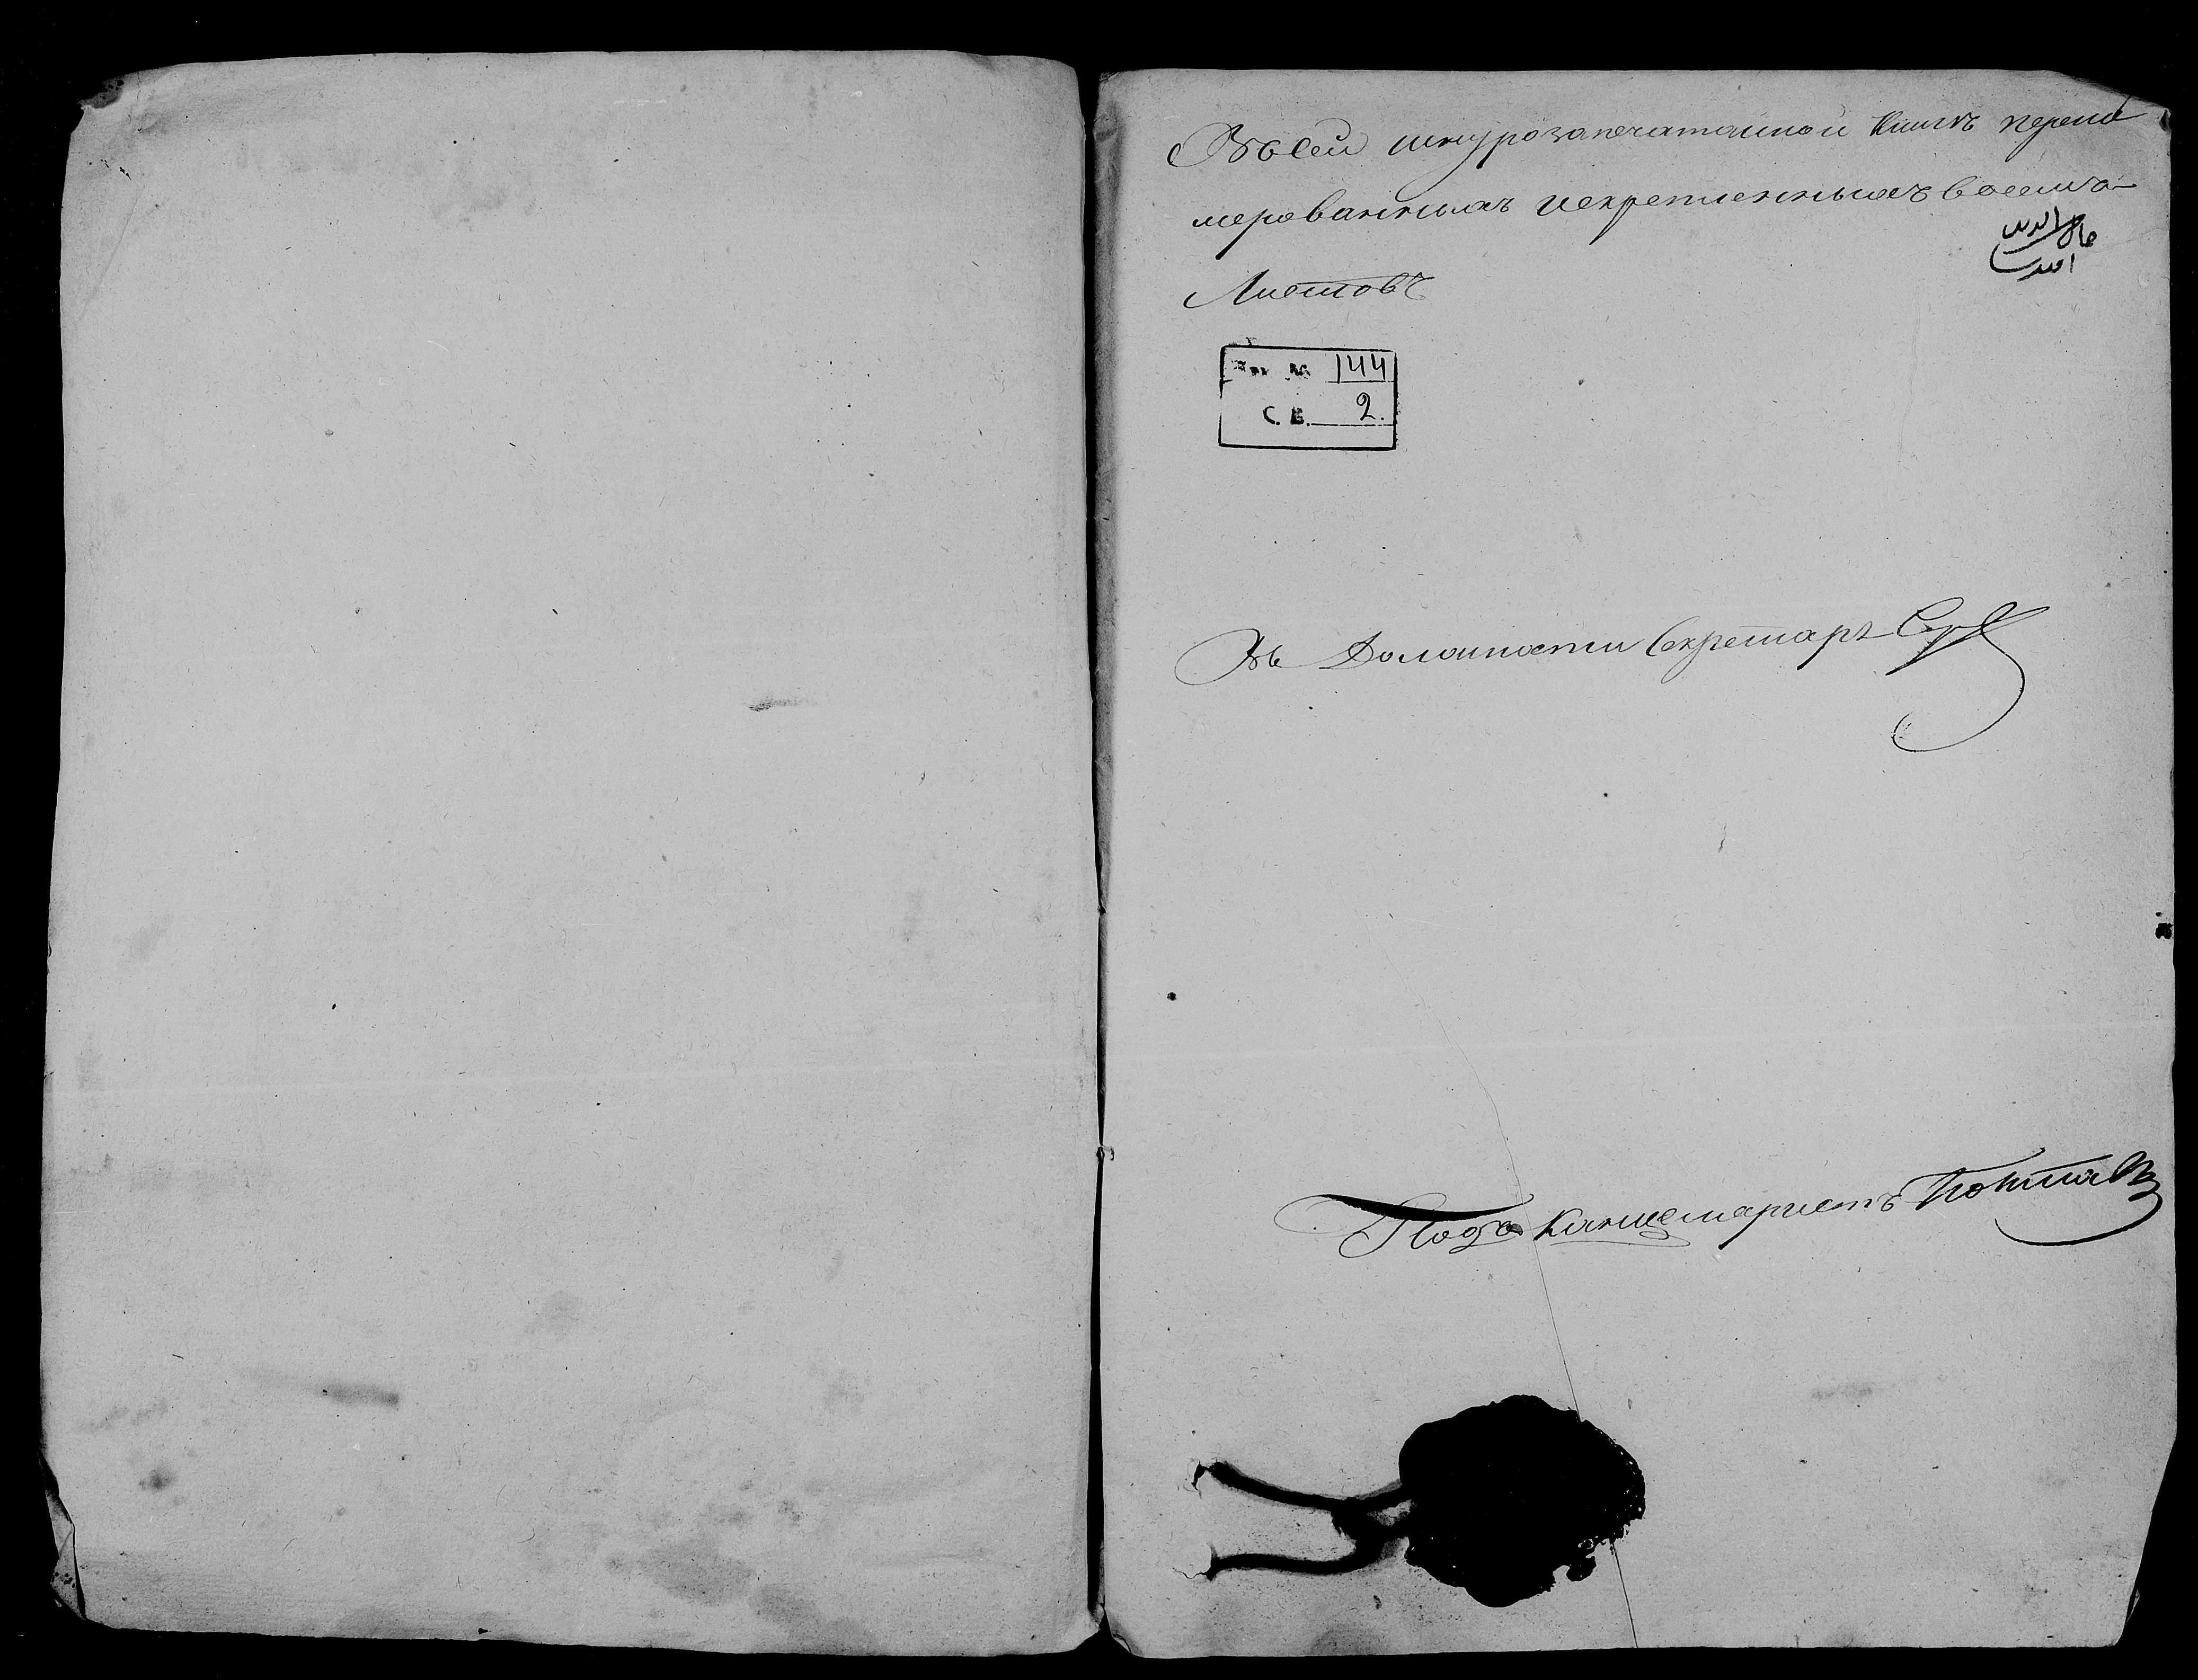 Въ сей шнурозапечатанной Книгѣ перену
мерованныхъ искрепленныхъ восемь
Листовъ
№ 144
С. В. 2.
Въ Должности Секретарь
Подъ Канцеляристъ